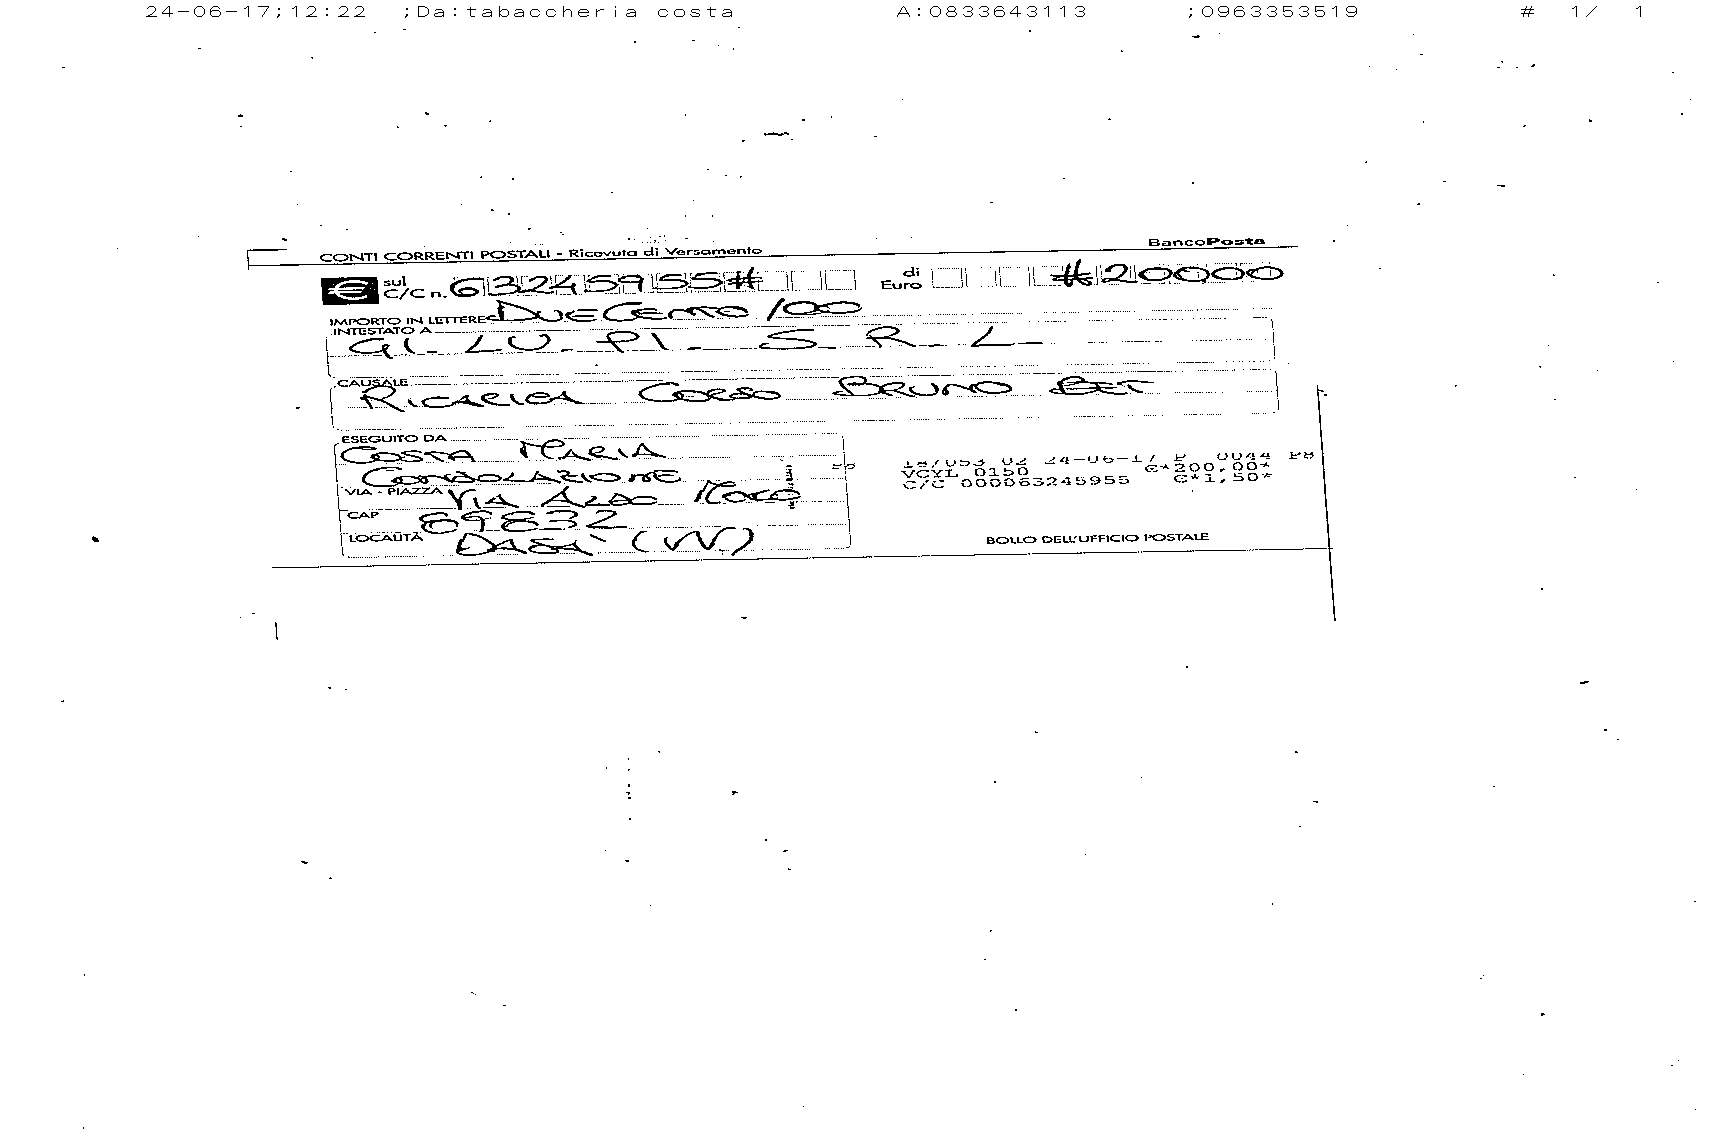 24-06-17;12:22 ;Da:tabaccheria costa A:0833643113 ;0963353519 # 1/ 1
CONTI CORRENTI POSTALI - Ricevuta di Versamento BancoPosta
€ sul C/C n. 63245955# di Euro #20000
IMPORTO IN LETTERE DUECENTO/00
INTESTATO A
GI. LU. PI. S. R. L.
CAUSALE
RICARICA CORSO BRUNO BET
ESEGUITO DA
COSTA MARIA
CONSOLAZIONE
VIA - PIAZZA VIA ALDO MORO
CAP 89832
LOCALITÀ DASA' (VV)
18/053 02 24-06-17 P 0044
VCYL 0150 €*200,00*
C/C 000063245955 €*1,50*
BOLLO DELL'UFFICIO POSTALE